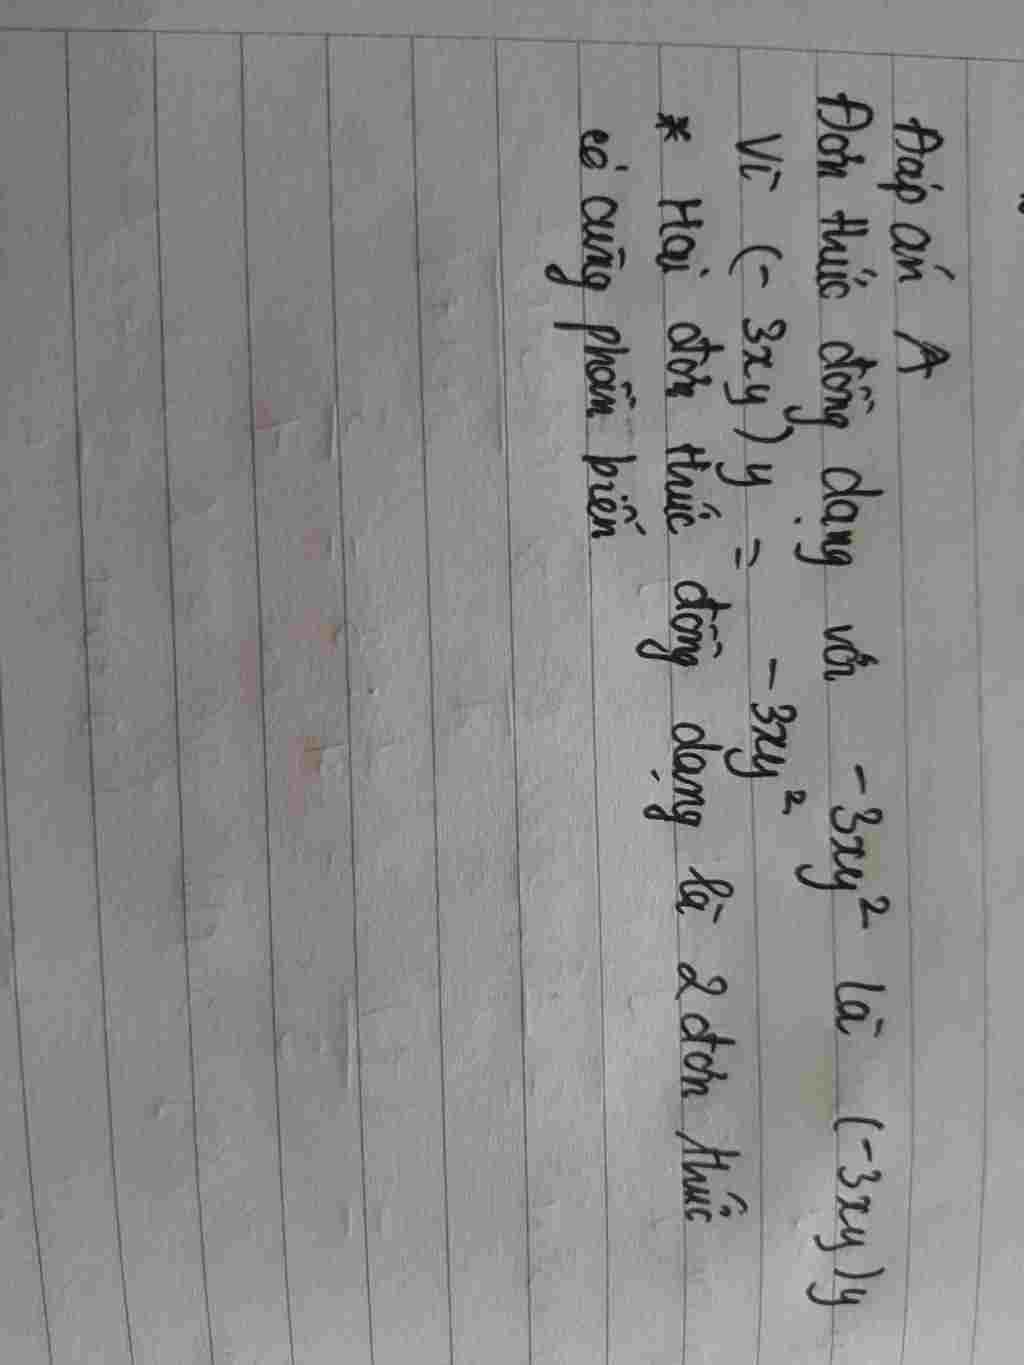 Đáp án A
Đơn thức đồng dạng với -3xy² là (-3xy)y
Vì (-3xy)y = -3xy²
* Hai đơn thức đồng dạng là 2 đơn thức
có cùng phần biến